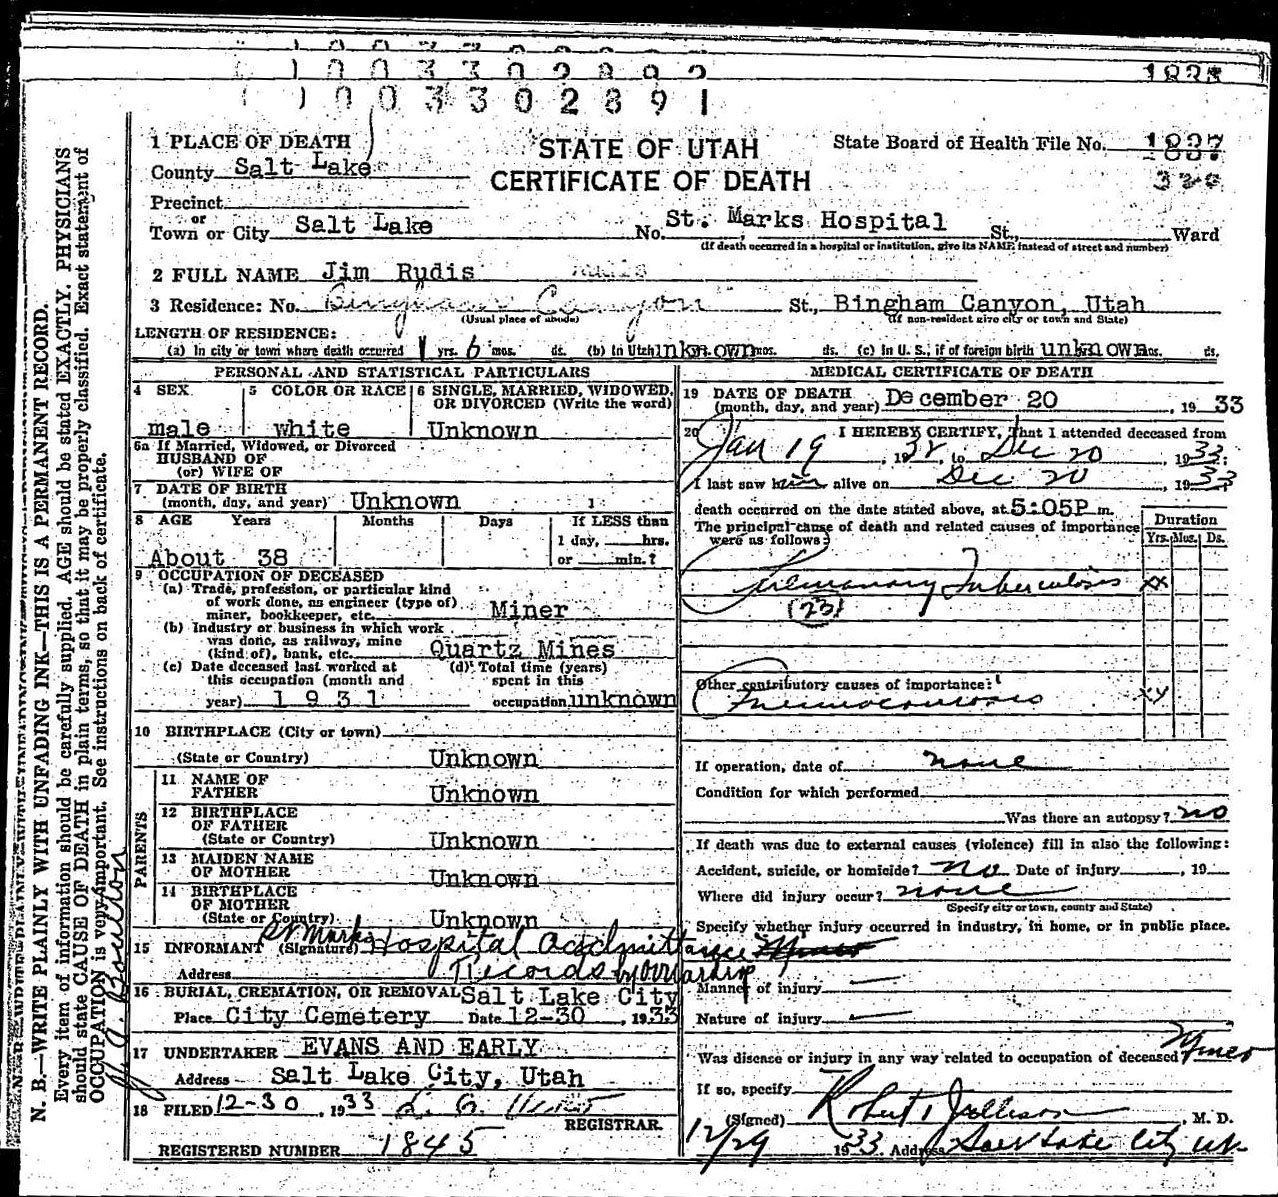 1 0 0 3 3 0 2 8 9 2
1 0 0 3 3 0 2 8 9 1
STATE OF UTAH
CERTIFICATE OF DEATH
State Board of Health File No. 1837
1 PLACE OF DEATH
County Salt Lake
Precinct
or
Town or City Salt Lake No. St. Marks Hospital St., Ward
(If death occurred in a hospital or institution, give its NAME instead of street and number)
2 FULL NAME Jim Rudis
3 Residence: No. Bingham Canyon St., Bingham Canyon, Utah
(Usual place of abode) (If non-resident give city or town and State)
LENGTH OF RESIDENCE:
(a) In city or town where death occurred 1 yrs. 6 mos. ds. (b) In Utah unknown mos. ds. (c) In U. S., if of foreign birth unknown mos. ds.
PERSONAL AND STATISTICAL PARTICULARS
4 SEX male
5 COLOR OR RACE white
6 SINGLE, MARRIED, WIDOWED, OR DIVORCED (Write the word) Unknown
6a If Married, Widowed, or Divorced
HUSBAND OF
(or) WIFE OF
7 DATE OF BIRTH
(month, day, and year) Unknown
8 AGE Years Months Days If LESS than
1 day, hrs.
About 38 or min.?
9 OCCUPATION OF DECEASED
(a) Trade, profession, or particular kind
of work done, as engineer (type of)
miner, bookkeeper, etc. Miner
(b) Industry or business in which work
was done, as railway, mine
(kind of), bank, etc. Quartz Mines
(c) Date deceased last worked at
this occupation (month and
year) 1931
(d) Total time (years)
spent in this
occupation unknown
10 BIRTHPLACE (City or town)
(State or Country) Unknown
PARENTS
11 NAME OF
FATHER Unknown
12 BIRTHPLACE
OF FATHER
(State or Country) Unknown
13 MAIDEN NAME
OF MOTHER Unknown
14 BIRTHPLACE
OF MOTHER
(State or Country) Unknown
15 INFORMANT (Signature) St Marks Hospital Admittance
Address Records by
16 BURIAL, CREMATION, OR REMOVAL Salt Lake City
Place City Cemetery Date 12-30, 1933
17 UNDERTAKER EVANS AND EARLY
Address Salt Lake City, Utah
18 FILED 12-30, 1933
REGISTRAR.
REGISTERED NUMBER 1845
MEDICAL CERTIFICATE OF DEATH
19 DATE OF DEATH
(month, day, and year) December 20, 1933
20 I HEREBY CERTIFY, That I attended deceased from
Jan 19, 1932, to Dec 20, 1933:
I last saw him alive on Dec 20, 1933
death occurred on the date stated above, at 5:05P m.
The principal cause of death and related causes of importance
were as follows:
Duration
Yrs. Mos. Ds.
Pulmonary Tuberculosis xx
(23)
Other contributory causes of importance:
Pneumoconiosis xx
If operation, date of none
Condition for which performed
Was there an autopsy? no
If death was due to external causes (violence) fill in also the following:
Accident, suicide, or homicide? no Date of injury, 19
Where did injury occur? none
(Specify city or town, county and State)
Specify whether injury occurred in industry, in home, or in public place.
Manner of injury
Nature of injury
Was disease or injury in any way related to occupation of deceased? Miner
If so, specify
(Signed) Robert Jellison, M. D.
12/29 1933. Address Salt Lake City Ut
N. B.—WRITE PLAINLY WITH UNFADING INK—THIS IS A PERMANENT RECORD.
Every item of information should be carefully supplied. AGE should be stated EXACTLY. PHYSICIANS
should state CAUSE OF DEATH in plain terms, so that it may be properly classified. Exact statement of
OCCUPATION is very important. See instructions on back of certificate.